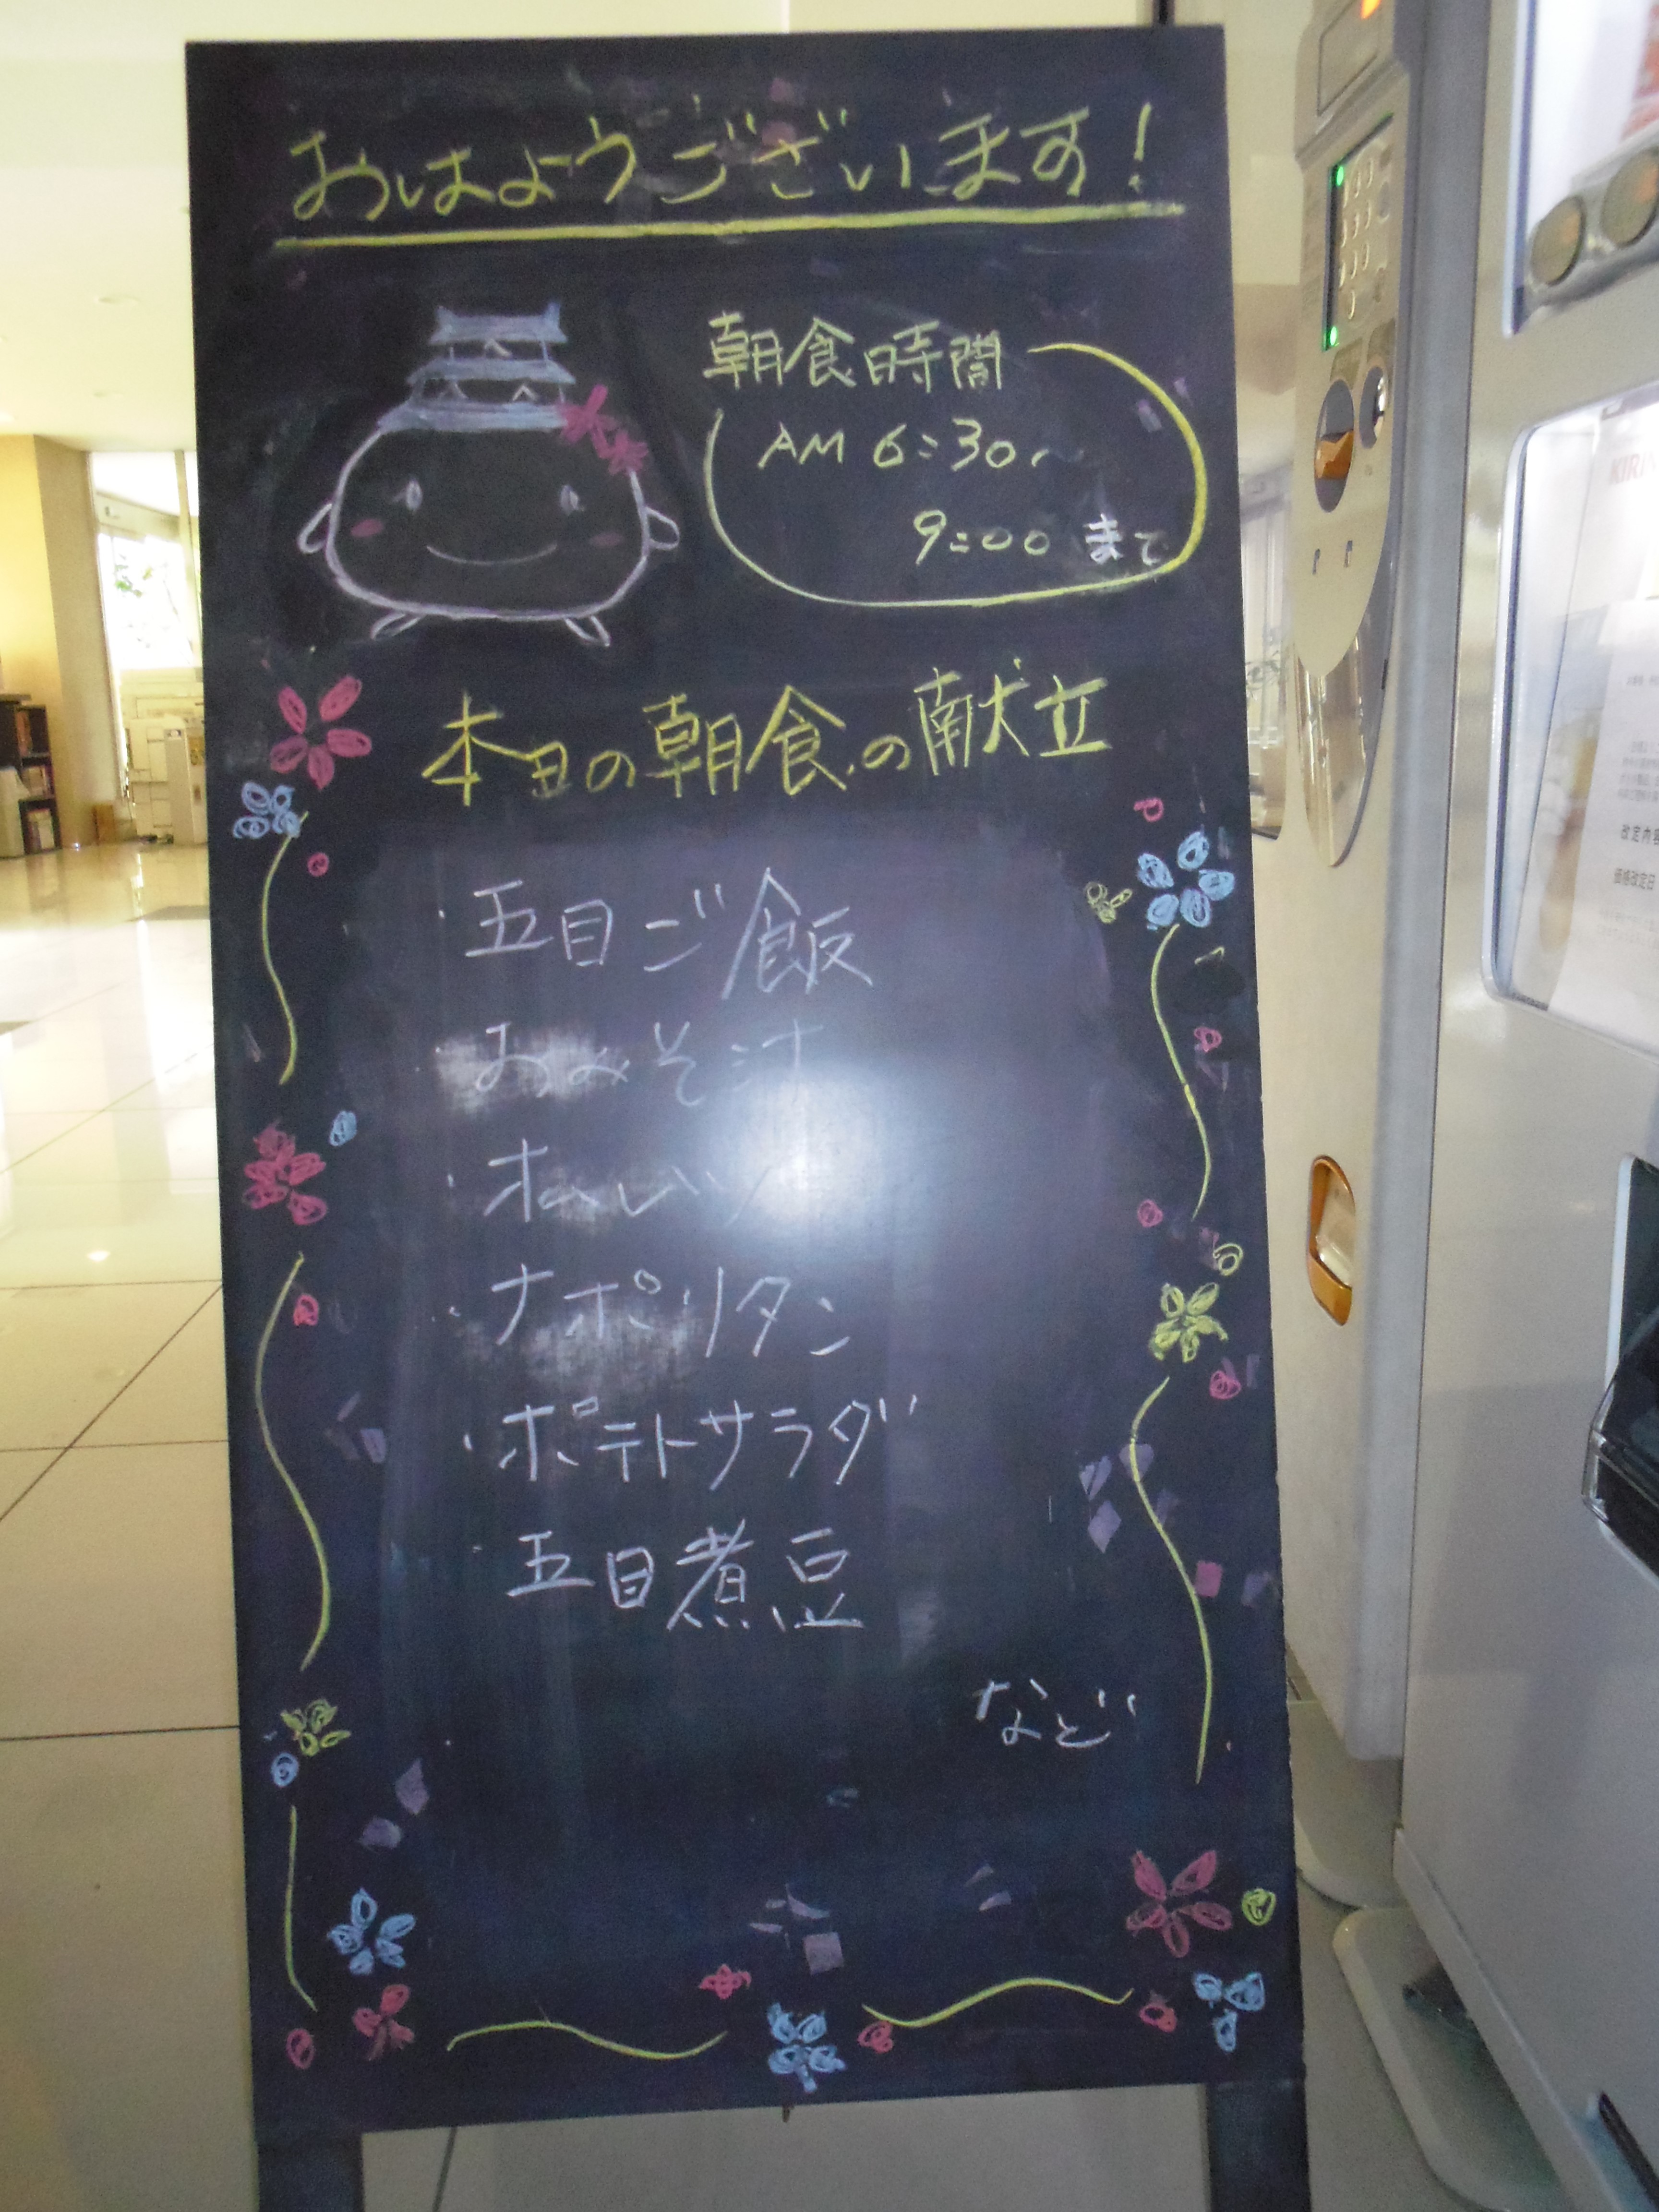 おはようございます!
朝食時間
AM 6:30〜
9:00 まで
本日の朝食の献立
・五目ご飯
おみそ汁
・オムレツ
・ナポリタン
・ポテトサラダ
・五目煮豆
など
KIRIN
改定内容
価格改定日